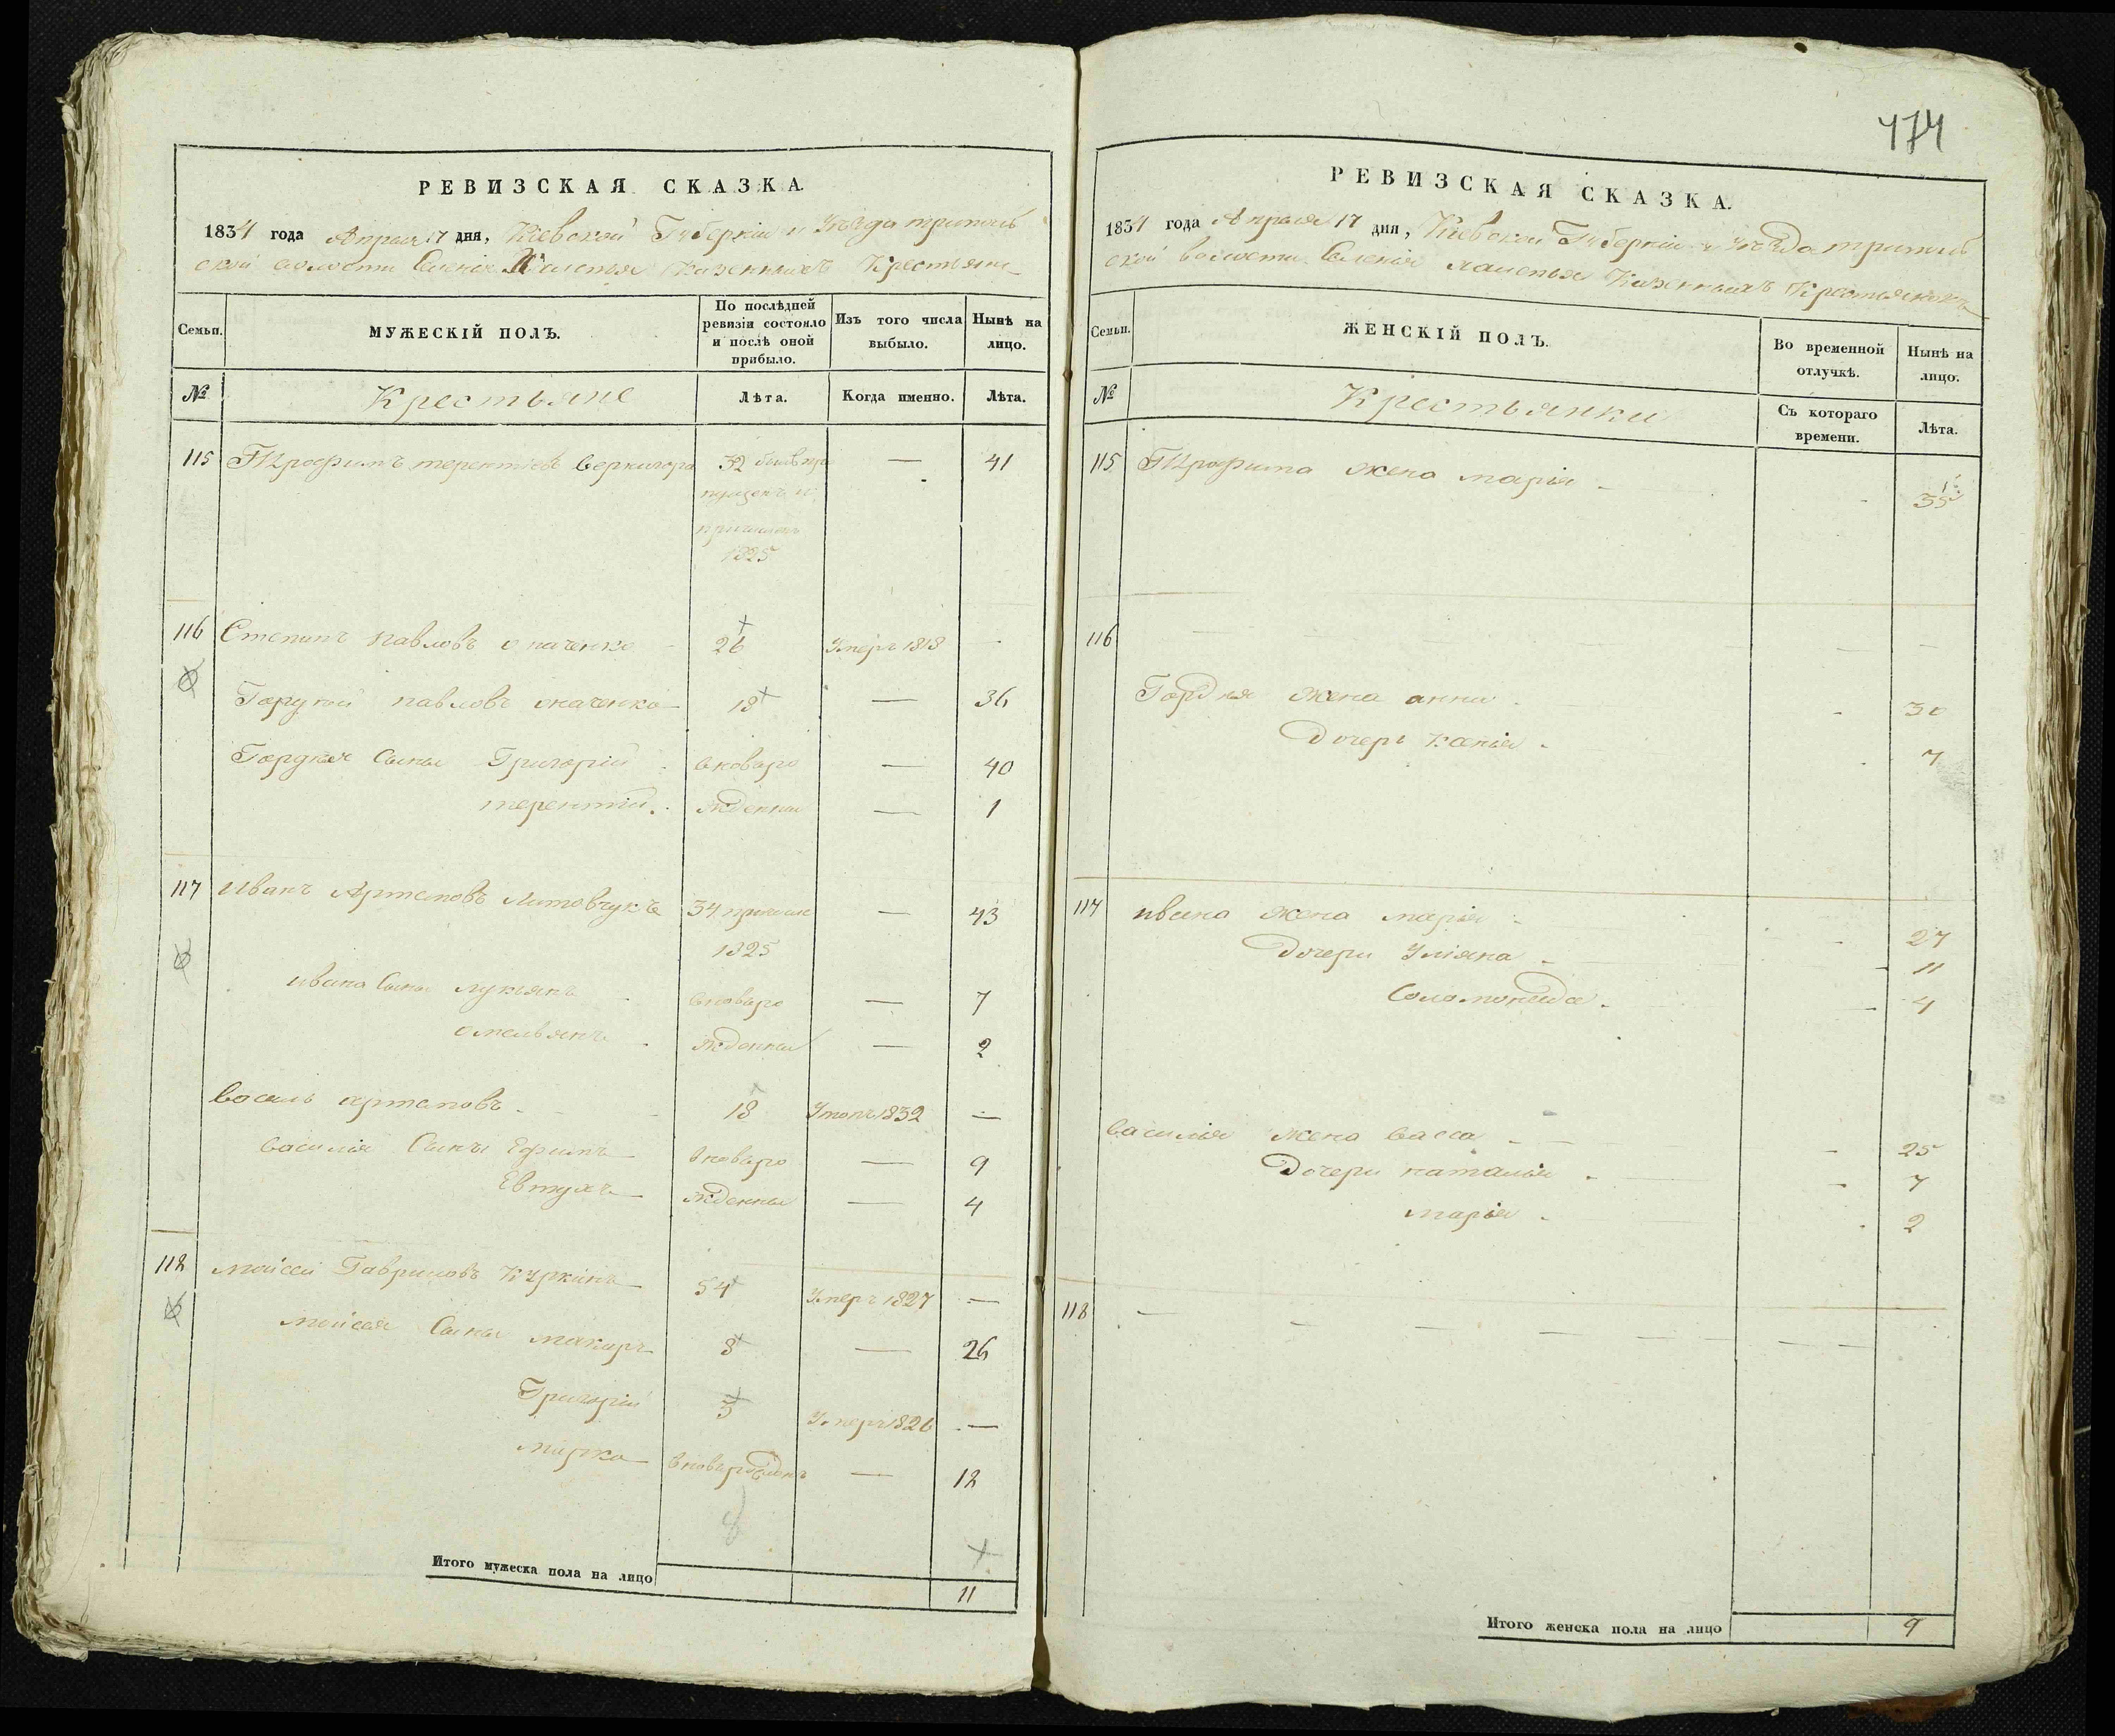 174
РЕВИЗСКАЯ СКАЗКА.
1834 года Апреля 17 дня, Кіевской Губерніи и Уѣзда триполь
ской волости Селенія Халепья Казенныхъ Крестьянъ
Семьи.
МУЖЕСКІЙ ПОЛЪ.
По послѣдней ревизіи состояло и послѣ оной прибыло.
Изъ того числа выбыло.
Нынѣ на лицо.
№
Крестьяне
Лѣта.
Когда именно.
Лѣта.
115 Трофимъ терентіевъ вернигора 32 — 41
причислен
1825
116 Степанъ павловъ 26 Умеръ 1818 —
Гордѣй павловъ 18 — 36
Гордѣя Сыны Григорій вноваро — 10
терентій жденны — 1
117 Иванъ Артемовъ Литовчукъ 34 — 43
1825
ивана Сыны лукьянъ вноваро — 7
омельянъ жденны — 2
василь артемовъ 18 Утопъ 1832 —
василія Сыны Ефимъ вноваро — 9
Евтухъ жденны — 4
118 моисей Гавриловъ Куркинъ 54 Умеръ 1827 —
моисея Сыны макаръ 8 — 26
Григорій 5 Умеръ 1826 —
марко вноварожденъ — 12
8
Итого мужеска пола на лицо 11
РЕВИЗСКАЯ СКАЗКА.
1834 года Апреля 17 дня, Кіевской Губерніи и уѣзда триполь
ской волости Селенія халепья Казенныхъ Крестьянокъ
Семьи.
ЖЕНСКІЙ ПОЛЪ.
Во временной отлучкѣ.
Нынѣ на лицо.
№
Крестьянки
Съ котораго времени.
Лѣта.
115 Трофима жена марія 35
116 — — —
Гордѣя жена анна 30
Дочерь 7
117 ивана жена марія 27
Дочери Уліяна 11
Соломонида 4
василія жена васса 25
Дочери наталья 7
марія 2
118 — — — — — — —
Итого женска пола на лицо 9